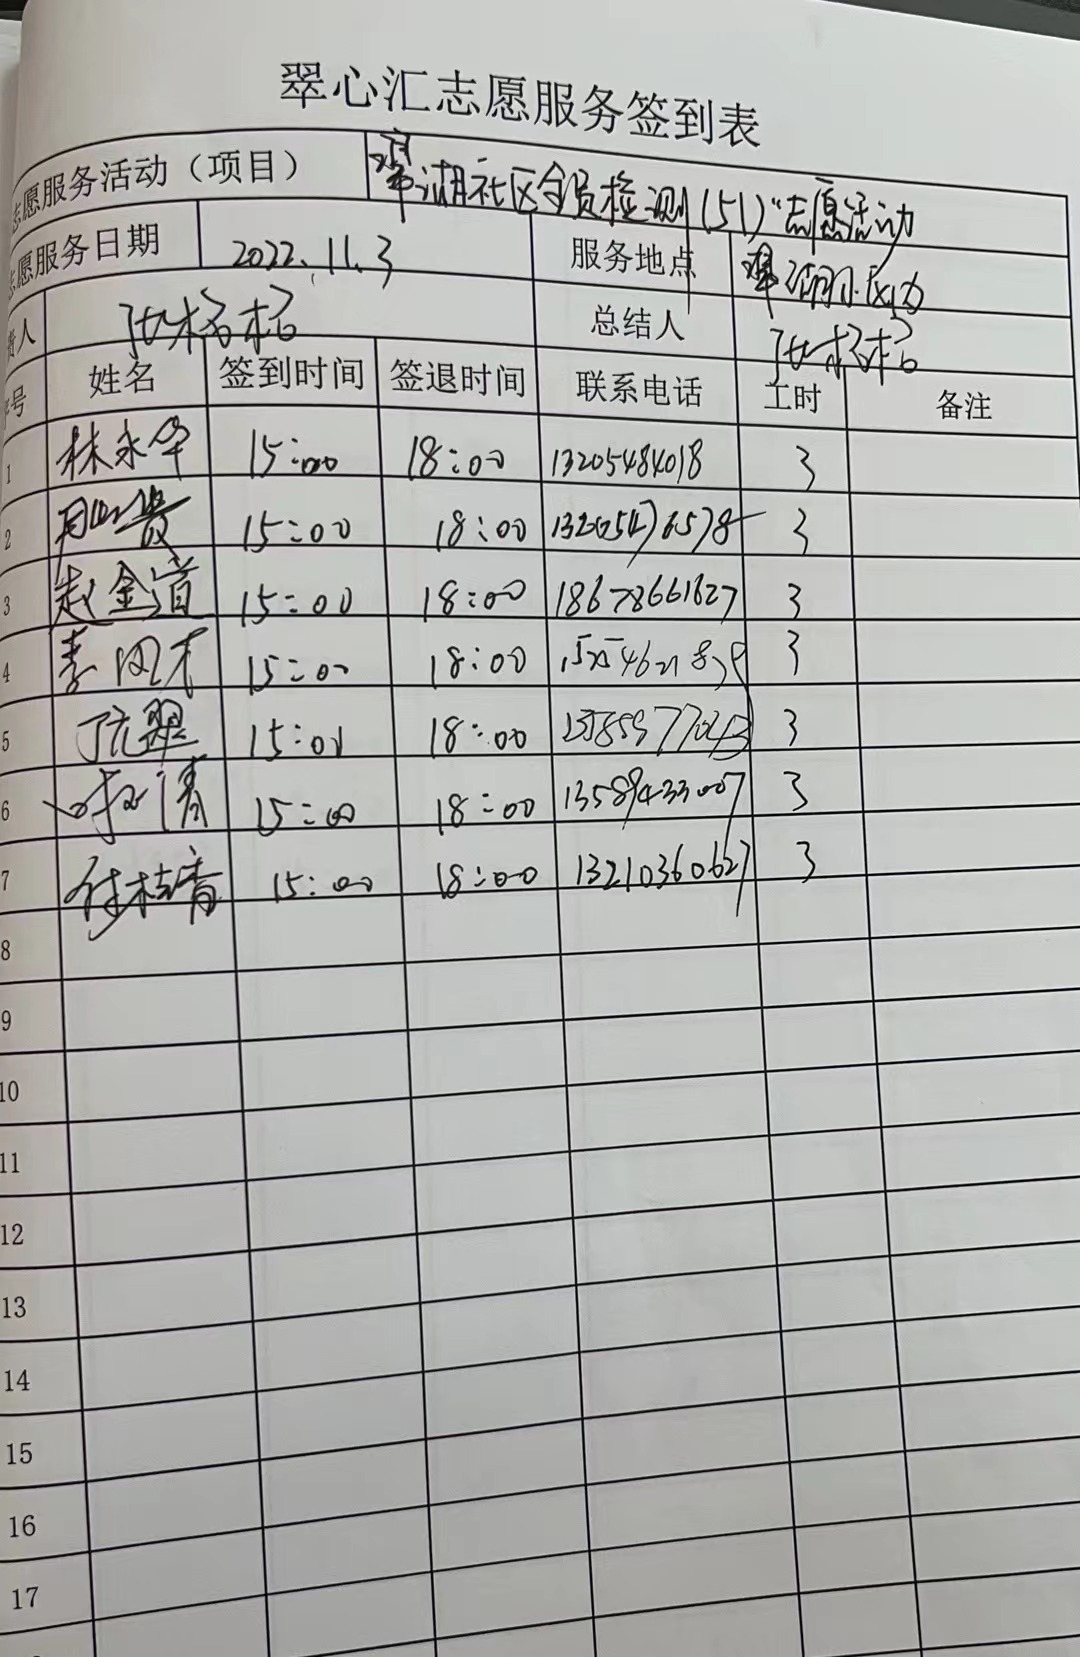 翠心汇志愿服务签到表
志愿服务活动（项目） 湖社区全员检测(51)"志愿活动
志愿服务日期 2022.11.3 服务地点
责人 张格格 总结人 张格格
序号 姓名 签到时间 签退时间 联系电话 工时 备注
1 林永华 15:00 18:00 13205484018 3
2 15:00 18:00 3
3 赵金道 15:00 18:00 18678661627 3
4 15:00 18:00 3
5 15:01 18:00 3
6 15:00 18:00 13589433007 3
7 15:00 18:00 13210360627 3
8
9
10
11
12
13
14
15
16
17